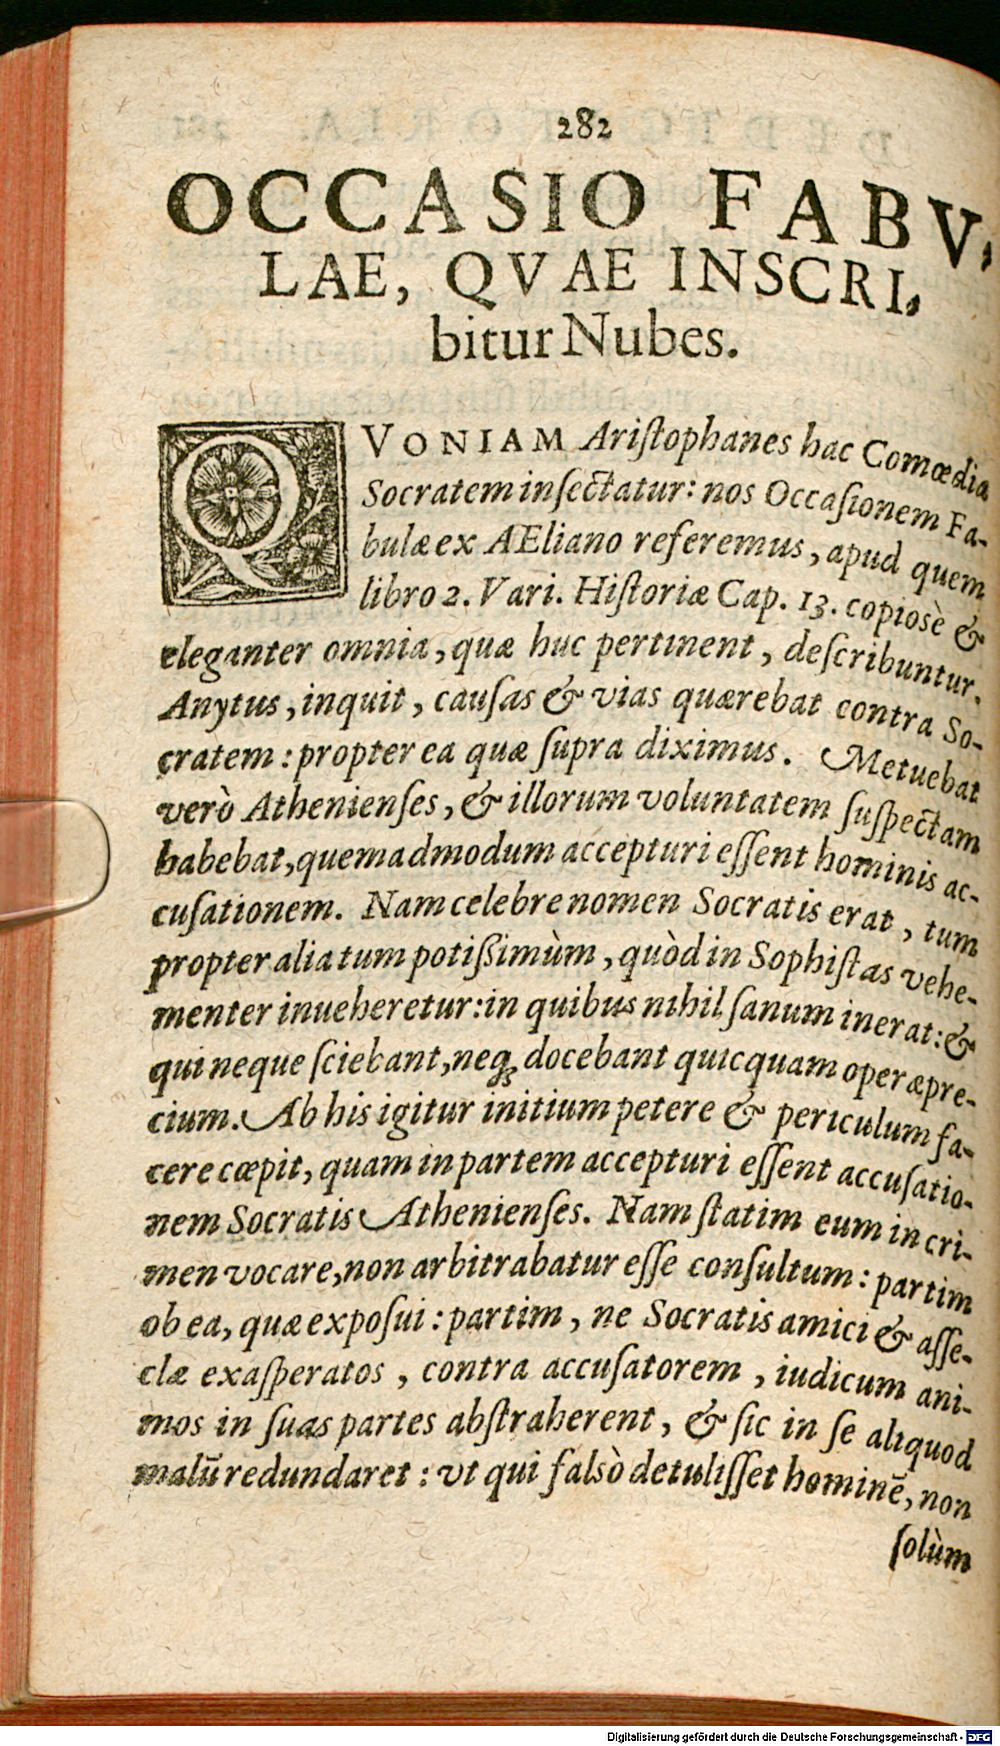 282
OCCASIO FABV-
LAE, QVAE INSCRI-
bitur Nubes.
QVONIAM Ariſtophanes hac Comœdia
Socratem inſectatur: nos Occaſionem Fa-
bulæ ex AEliano referemus, apud quem
libro 2. Vari. Hiſtoriæ Cap. 13. copiosè &
eleganter omnia, quæ huc pertinent, deſcribuntur.
Anytus, inquit, cauſas & vias quærebat contra So-
cratem: propter ea quæ ſupra diximus. Metuebat
verò Athenienſes, & illorum voluntatem ſuſpectam
habebat, quemadmodum accepturi eſſent hominis ac-
cuſationem. Nam celebre nomen Socratis erat, tum
propter alia tum potißimùm, quòd in Sophiſtas vehe-
menter inueheretur: in quibus nihil ſanum inerat: &
qui neque ſciebant, neqꝫ docebant quicquam operæpre-
cium. Ab his igitur initium petere & periculum fa-
cere cœpit, quam in partem accepturi eſſent accuſatio-
nem Socratis Athenienſes. Nam ſtatim eum in cri-
men vocare, non arbitrabatur eſſe conſultum: partim
ob ea, quæ expoſui: partim, ne Socratis amici & aſſe-
clæ exaſperatos, contra accuſatorem, iudicum ani-
mos in ſuas partes abſtraherent, & ſic in ſe aliquod
malū redundaret: vt qui falsò detuliſſet hominē, non
ſolùm
Digitalisierung gefördert durch die Deutsche Forschungsgemeinschaft - DFG